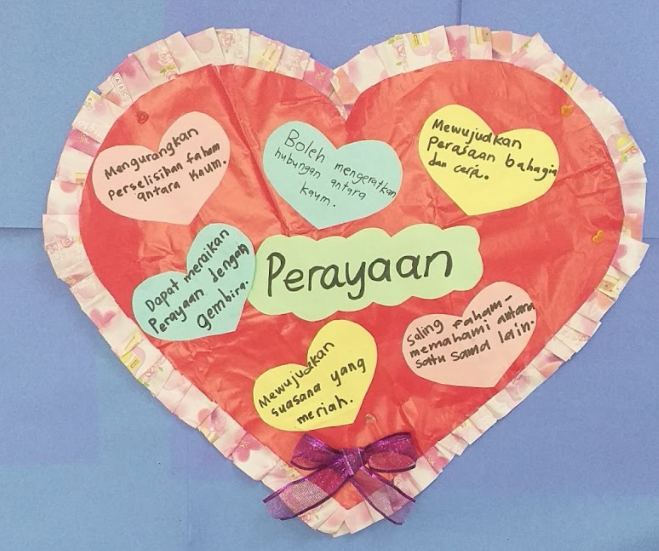 Mengurangkan
perselisihan faham
antara kaum.
Boleh mengeratkan
hubungan antara
kaum.
Mewujudkan
Perasaan bahagia
dan ceria.
Dapat meraikan
Perayaan dengan
gembira.
Perayaan
Mewujudkan
suasana yang
meriah.
saling faham-
memahami antara
satu sama lain.